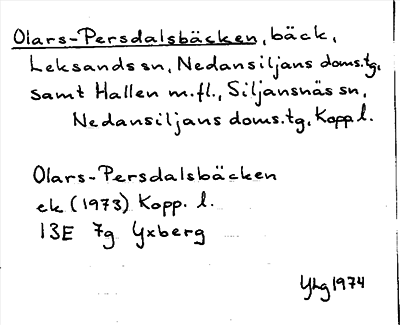 Olars-Persdalsbäcken, bäck,
Leksands sn, Nedansiljans doms.tg,
samt Hallen m.fl., Siljansnäs sn,
Nedansiljans doms.tg, Kopp.l.
Olars-Persdalsbäcken
ek (1973) Kopp. l.
13E 7g Yxberg
YLg 1974